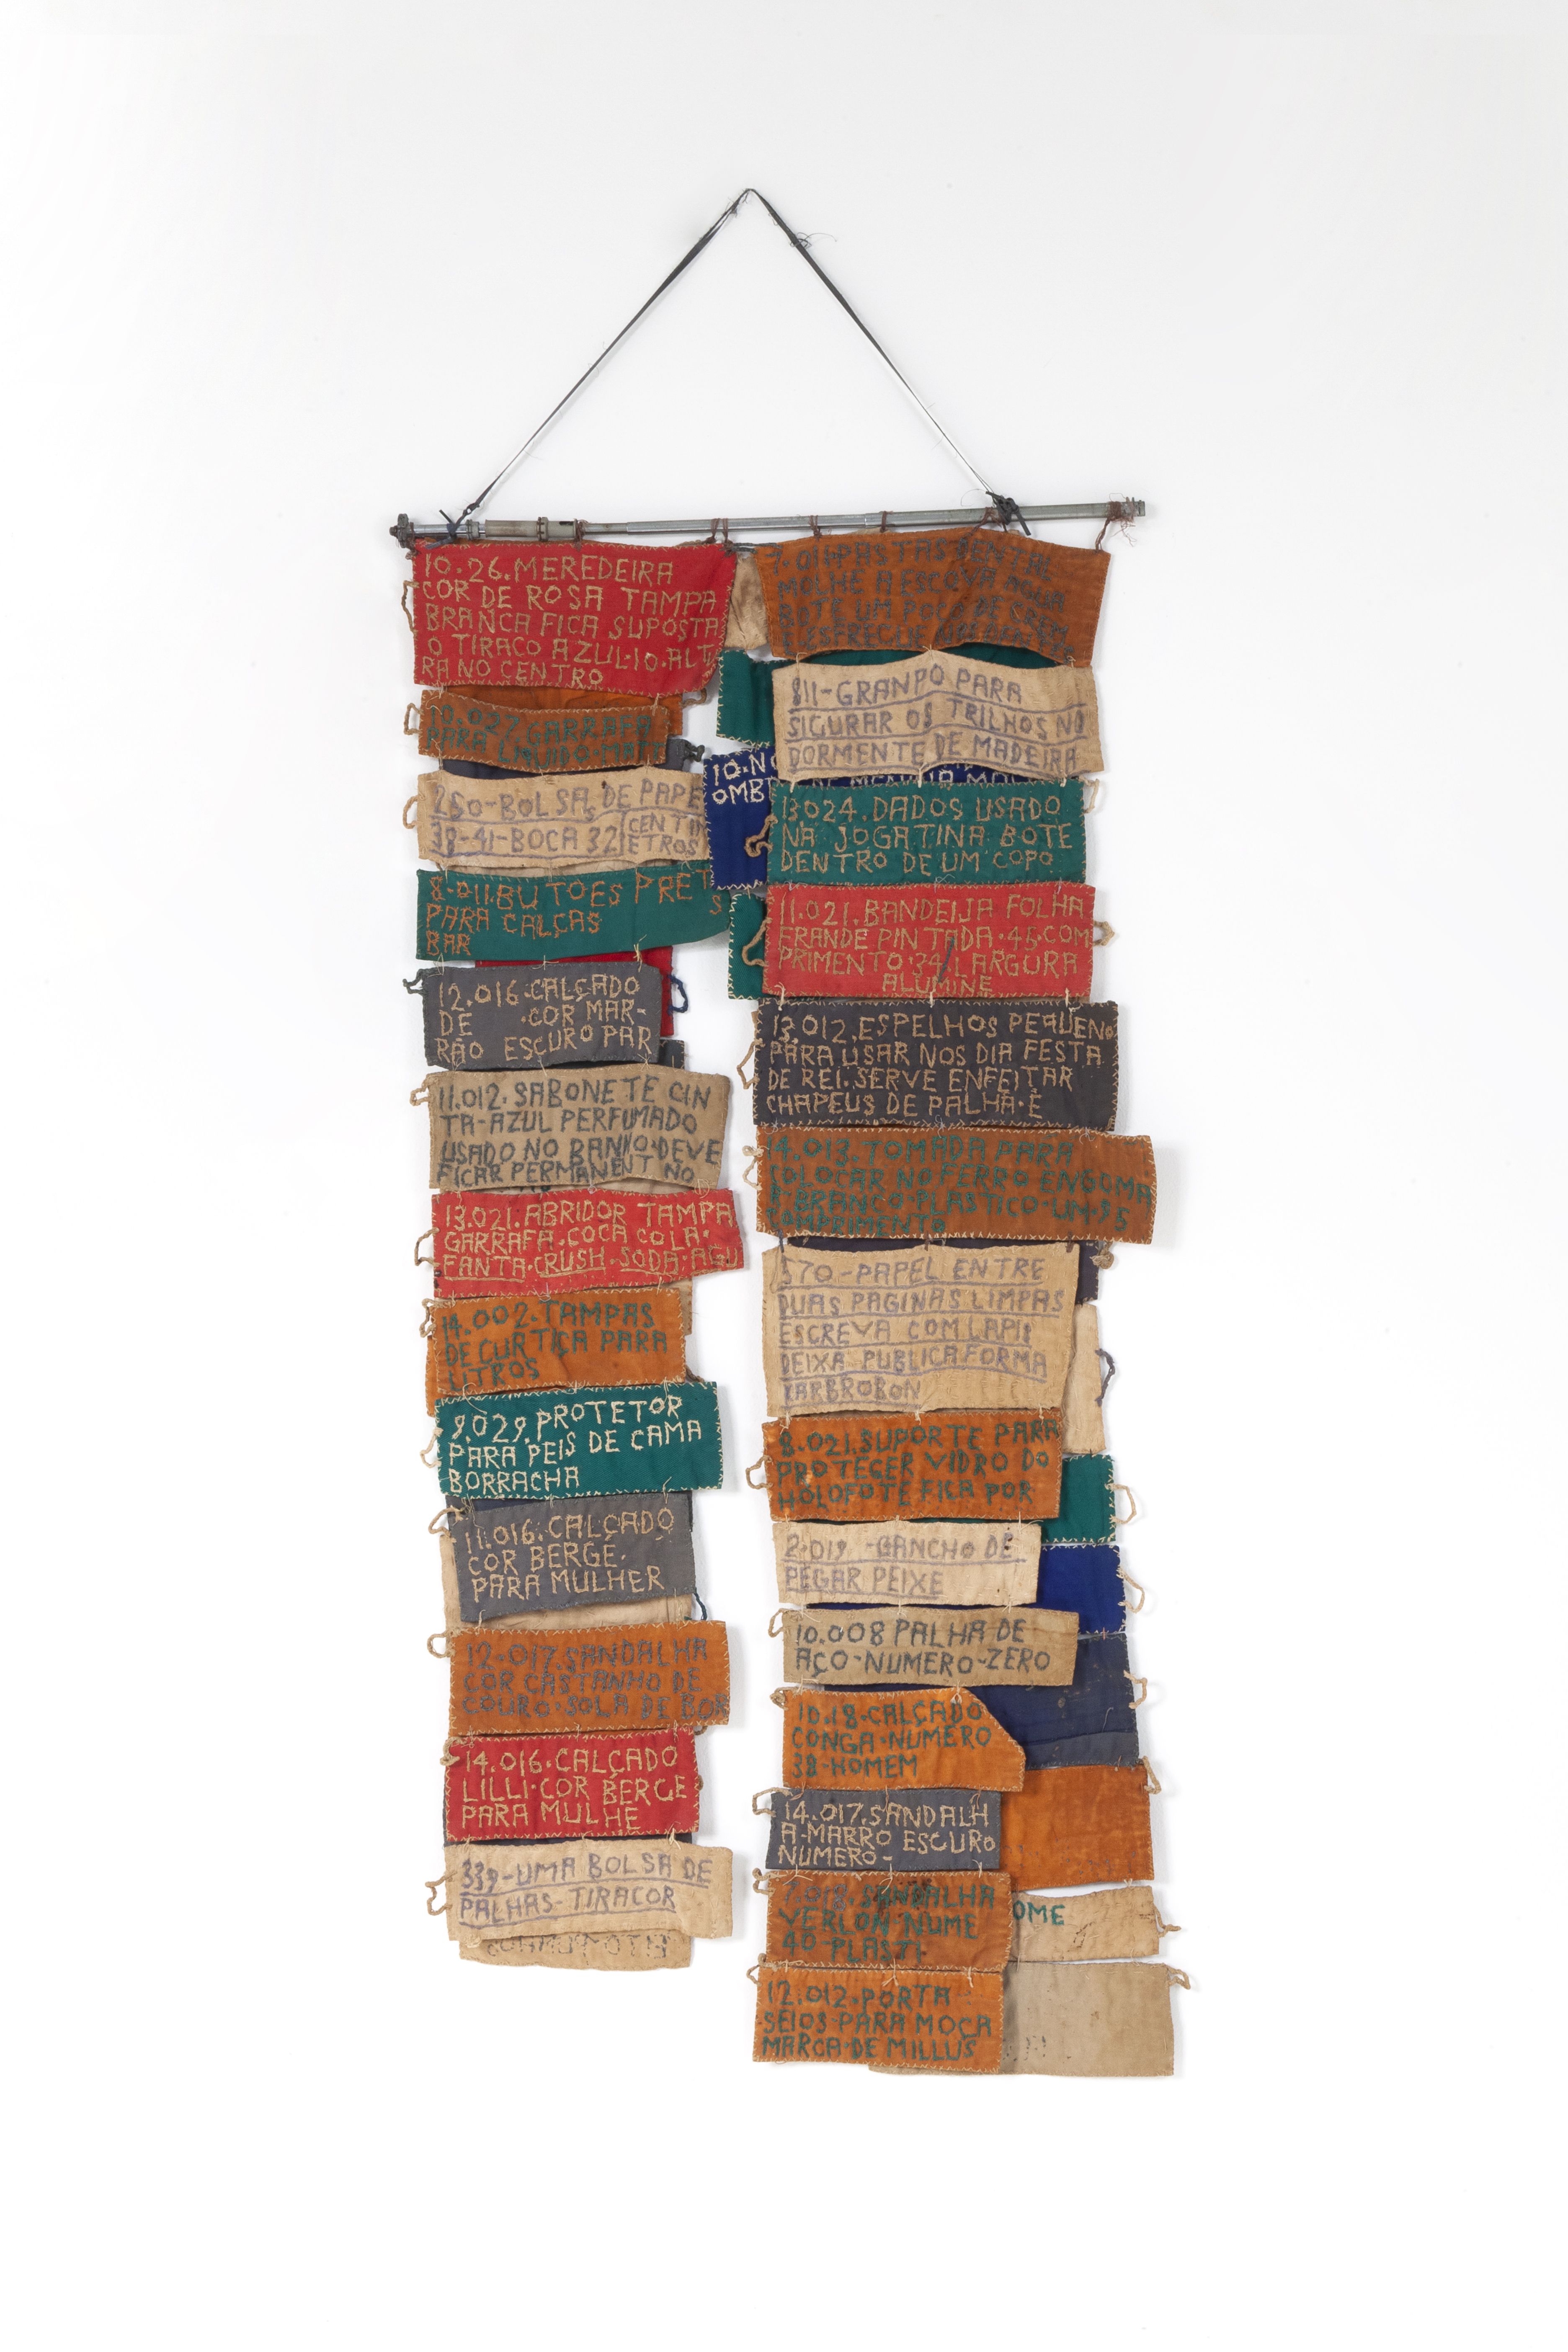 10.26.MEREDEIRA
COR DE ROSA TAMPA
BRANCA FICA SUPOSTA
O TIRACO AZUL.10.ALT
RA NO CENTRO
10.027.GARRAFA
PARA LIQUIDO.
250-BOLSAS DE PAPE
38-41-BOCA 32 CENTIM
ETROS
8.011.BUTOES PRET
S
PARA CALÇAS
BAR
12.016.CALÇADO
DE .COR MAR-
RÃO ESCURO PAR
11.012.SABONETE CIN
TA-AZUL PERFUMADO
USADO NO BANHO.DEVE
FICAR PERMANENT NO
13.021.ABRIDOR TAMPA
GARRAFA.COCA COLA.
FANTA.CRUSH.SODA.AGU
14.002.TAMPAS
DE CURTIÇA PARA
LITROS
9.029.PROTETOR
PARA PEIS DE CAMA
BORRACHA
11.016.CALÇADO
COR BERGE.
PARA MULHER
12.017.SANDALHA
COR CASTANHO DE
COURO.SOLA DE BOR
14.016.CALÇADO
LILLI.COR BERGE
PARA MULHE
339-UMA BOLSA DE
PALHAS-TIRACOR
MOLHE A ESCOVA AGUA
BOTE UM POCO DE
811-GRANPO PARA
SIGURAR OS TRILHOS NO
DORMENTE DE MADEIRA
10.NO
OMB
13024.DADOS USADO
NA JOGATINA BOTE
DENTRO DE UM COPO
11.021.BANDEIJA FOLHA
FRANDE PINTADA.45.COM
PRIMENTO.34.LARGURA
ALUMINE
13.012.ESPELHOS PEQUENO
PARA USAR NOS DIA FESTA
DE REI.SERVE ENFEITAR
CHAPEUS DE PALHA.E
14.013.TOMADA PARA
COLOCAR NO FERRO ENGOMA
R.BRANCO.PLASTICO.UM.35
COMPRIMENTO
570-PAPEL ENTRE
DUAS PAGINAS LIMPAS
ESCREVA COM LAPIS
DEIXA PUBLICA FORMA
KARBROBON
8.021.SUPORTE PARA
PROTEGER VIDRO DO
HOLOFOTE FICA POR
2.019 -GANCHO DE
PEGAR PEIXE
10.008 PALHA DE
AÇO-NUMERO-ZERO
10.18.CALÇADO
CONGA.NUMERO
38-HOMEM
14.017.SANDALH
A-MARRO ESCURO
NUMERO-
7.018.SANDALHA
VERLON-NUME
40-PLASTI
OME
12.012.PORTA
SEIOS-PARA MOÇA
MARCA-DE MILLUS